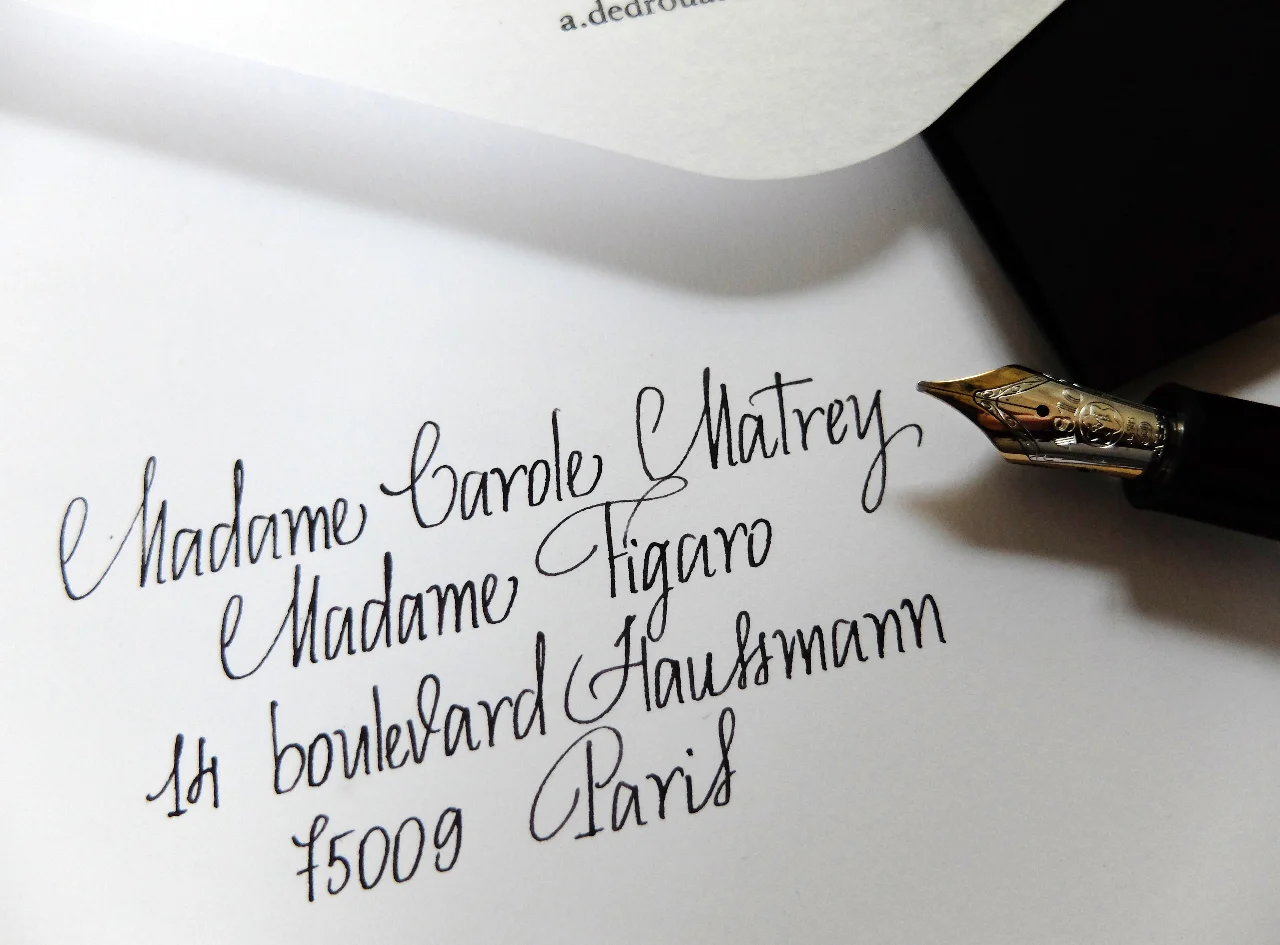 a.dedroua
Madame Carole Matrey
Madame Figaro
14 boulevard Haussmann
75009 Paris